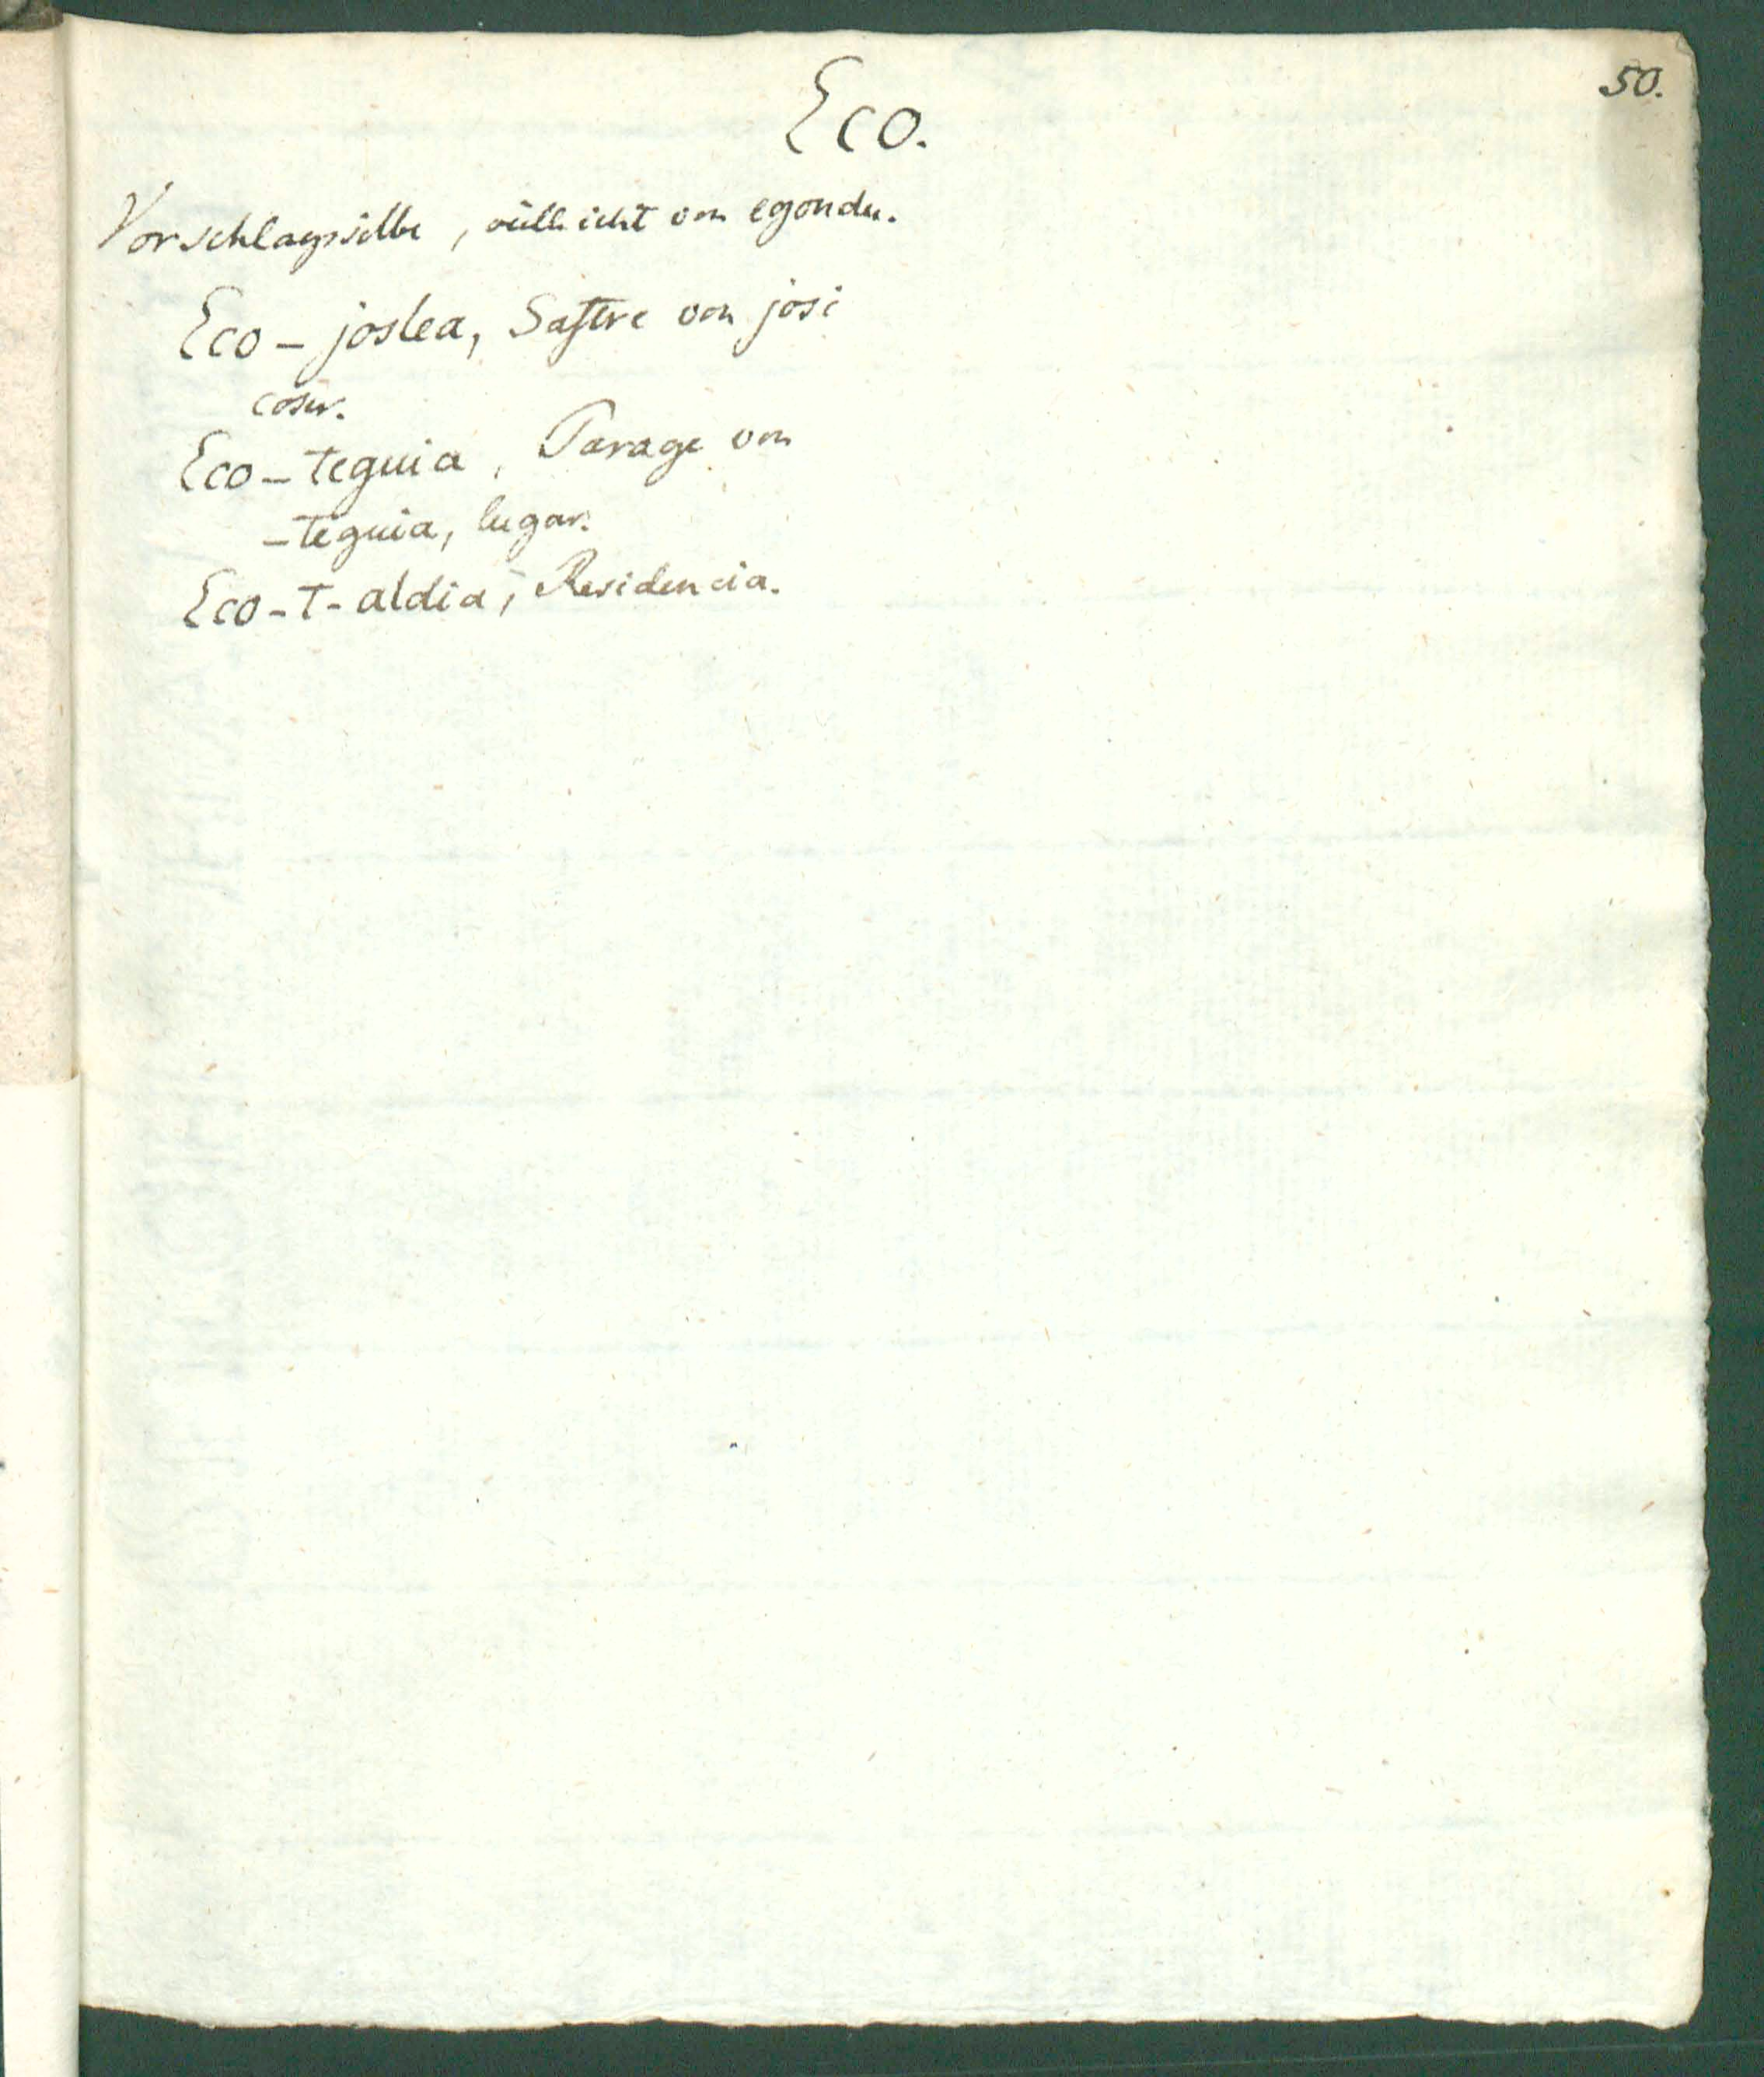 50.
Eco.
Vorschlagssilbe, vielleicht von egondu.
Eco-joslea, Sastre von josi
coser.
Eco-teguia, Parage von
-teguia, lugar.
Eco-t-aldia, Residencia.